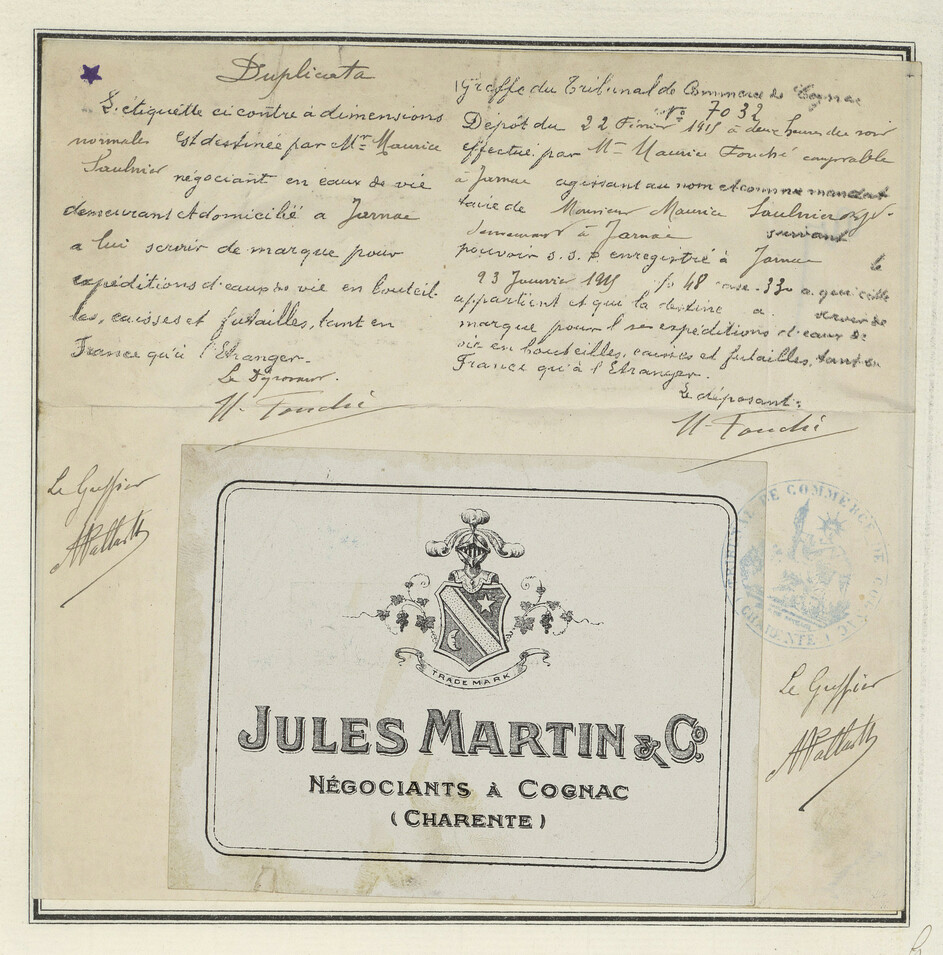 Duplicata
L'étiquette ci contre à dimensions
normales est destinée par Mr Maurice
Saulnier négociant en eaux de vie
demeurant et domicilié a Jarnac
a lui servir de marque pour
expéditions d'eaux de vie en bouteil-
les, caisses et futailles, tant en
France qu'à l'Etranger.
Le Déposant.
M. Fouché
Greffe du Tribunal de Commerce de Cognac
No 7032
Dépôt du 22 Février 1915 à deux heures du soir
effectué par Mr Maurice Fouché comptable
à Jarnac agissant au nom et comme mandat
taire de Monsieur Maurice Saulnier
demeurant à Jarnac suivant
pouvoir s.s.p enregistré à Jarnac le
23 Janvier 1915 fo 48 case 330 a qui elle
appartient et qui la destine a servir de
marque pour ses expéditions d'eaux de
vie en bouteilles, caisses et futailles, tant en
France qu'à l'Etranger.
Le déposant:
M. Fouché
Le Greffier
TRIBUNAL DE COMMERCE DE COGNAC
(CHARENTE)
TRADE MARK
JULES MARTIN & Co.
NÉGOCIANTS À COGNAC
(CHARENTE)
Le Greffier